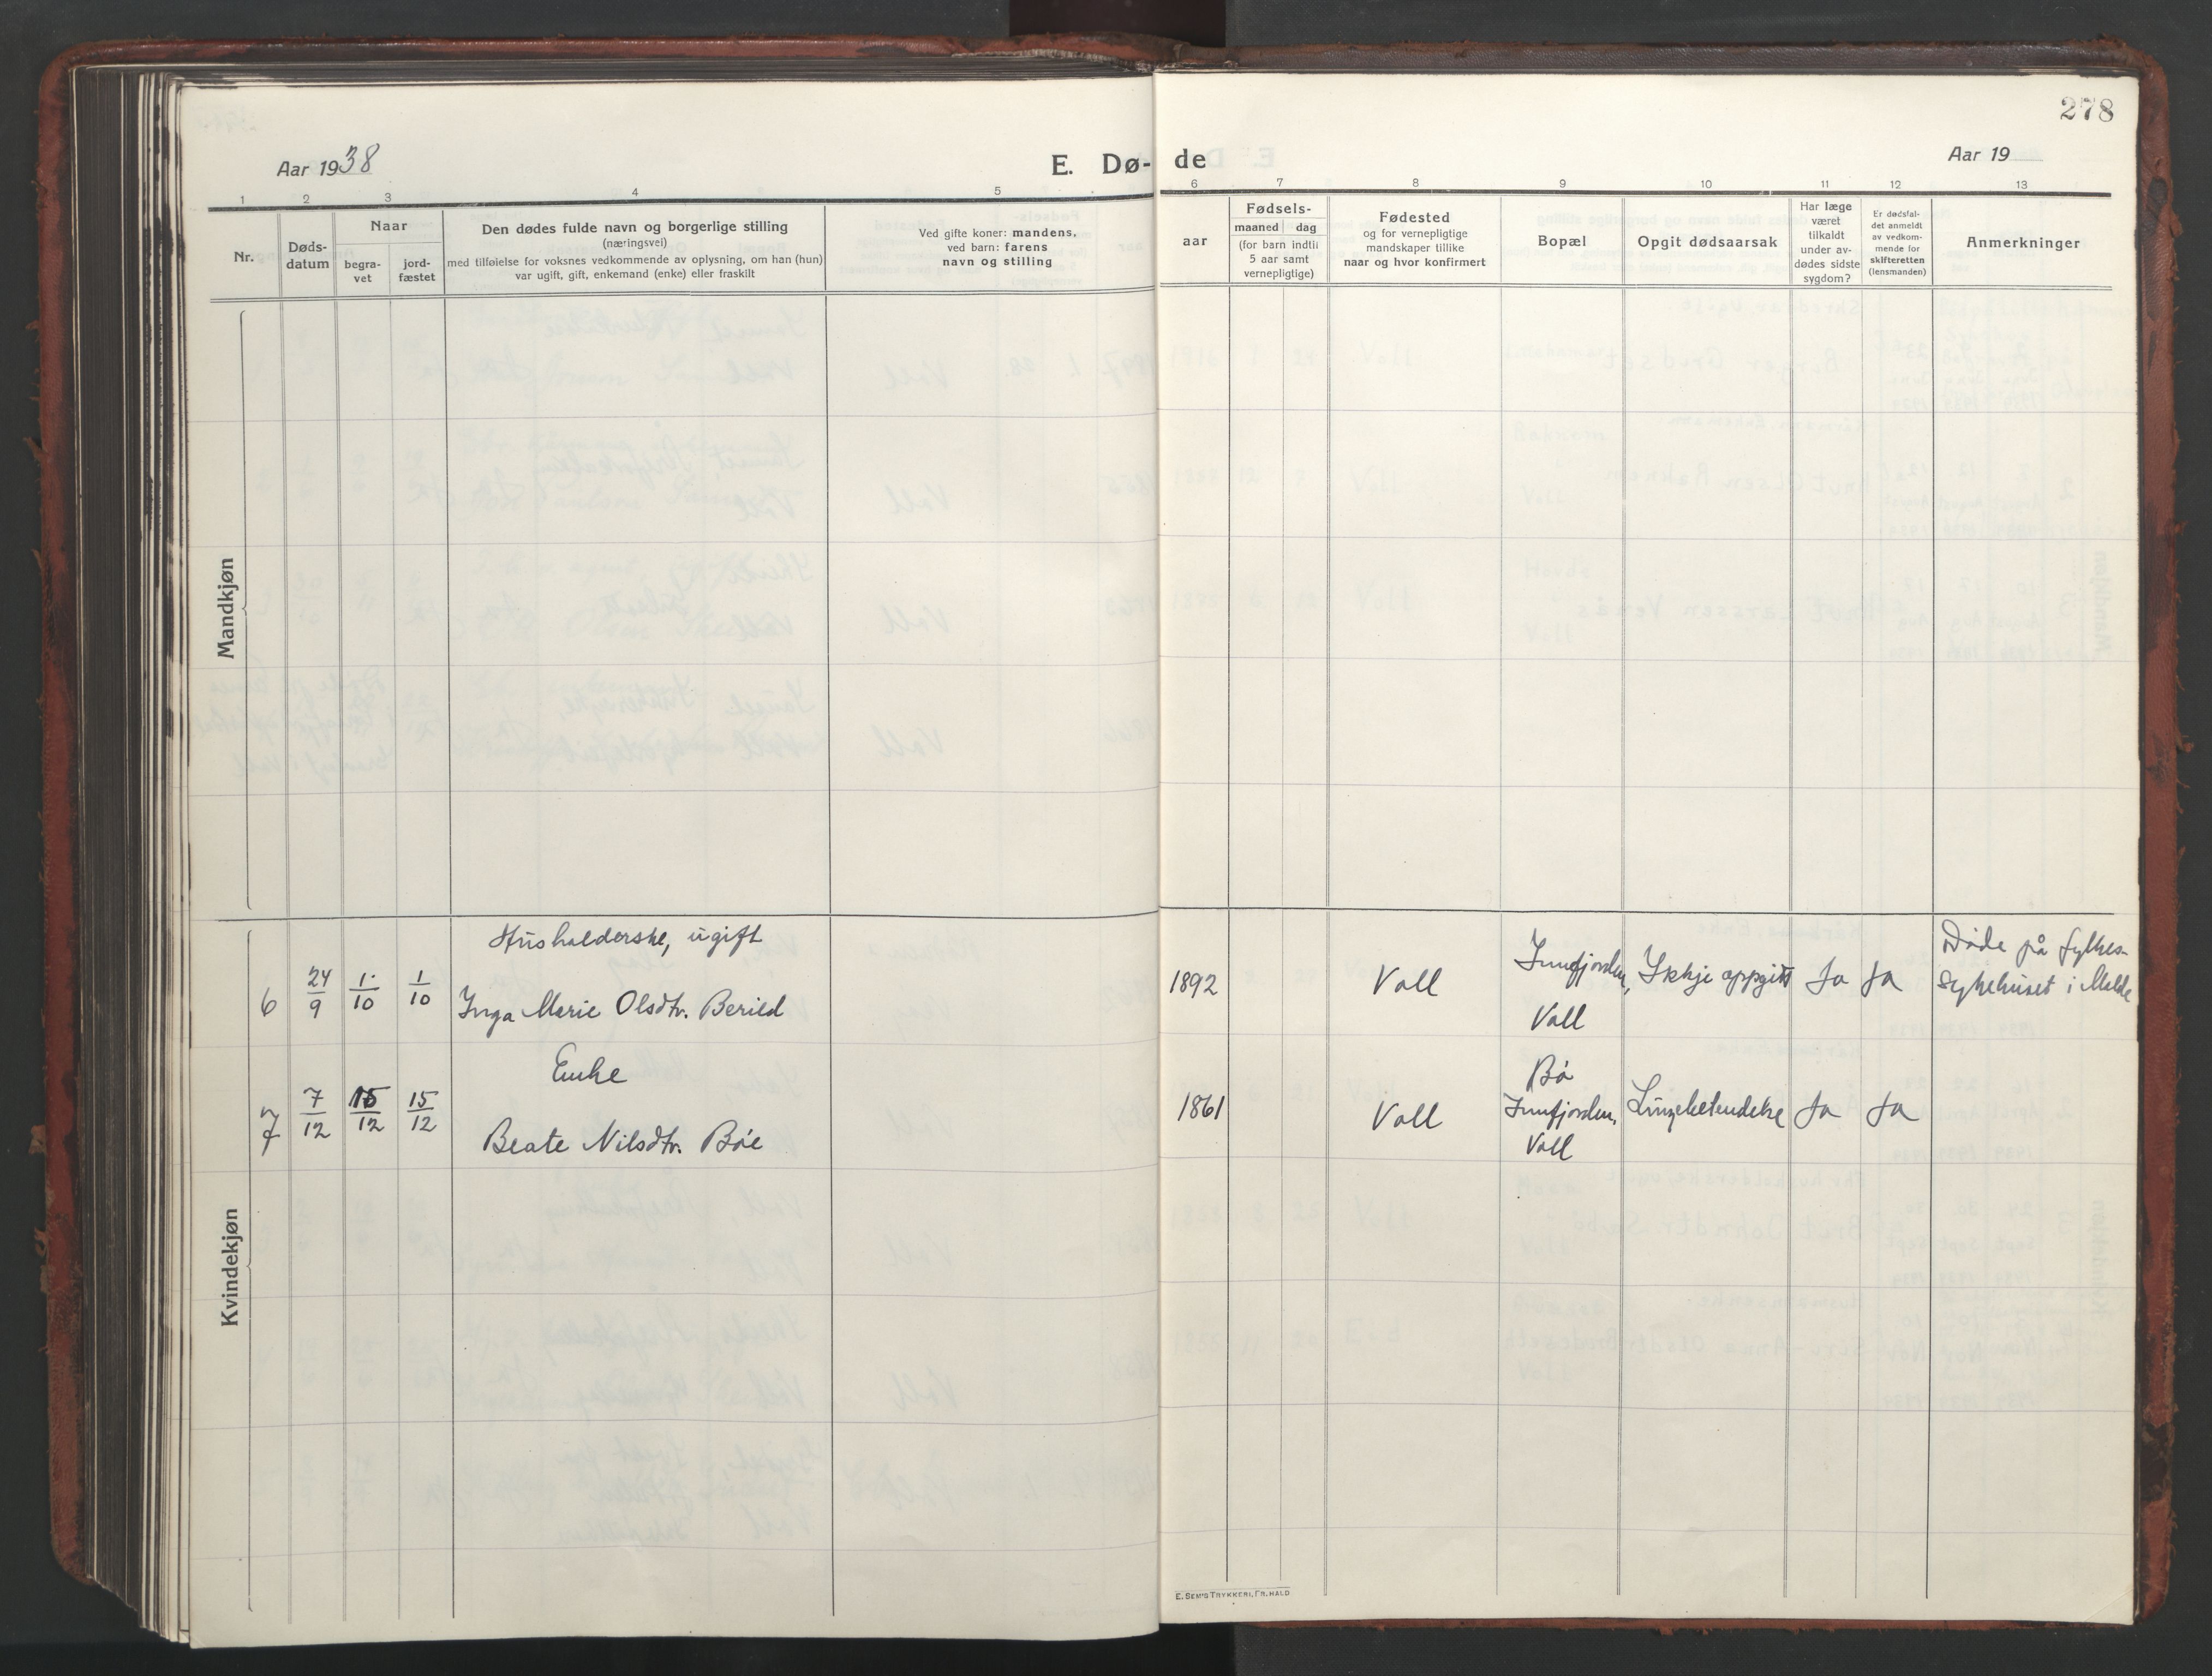 278
Aar 1938
E. Dø-
de
Aar 19
1 2 3 4 5 6 7 8 9 10 11 12 13
Nr.
Døds-
datum
Naar
begra-
vet
jord-
fæstet
Den dødes fulde navn og borgerlige stilling
(næringsvei)
med tilføielse for voksnes vedkommende av oplysning, om han (hun)
var ugift, gift, enkemand (enke) eller fraskilt
Ved gifte koner: mandens,
ved barn: farens
navn og stilling
aar
Fødsels-
maaned dag
(for barn indtil
5 aar samt
vernepligtige)
Fødested
og for vernepligtige
mandskaper tillike
naar og hvor konfirmert
Bopæl
Opgit dødsaarsak
Har læge
været
tilkaldt
under av-
dødes sidste
sygdom?
Er dødsfal-
det anmeldt
av vedkom-
mende for
skifteretten
(lensmanden)
Anmerkninger
Mandkjøn
Husholderske, ugift
6 24/9 1/10 1/10 Inga Marie Olsdtr. Berild
1892 Voll
Innfjorden,
Voll
Ikkje oppgitt Ja Ja
Døde på fylkes-
sykehuset i Molde
Enke
7 7/12 15/12 15/12 Beate Nilsdtr. Bøe
1861 Voll
Bø
Innfjorden,
Voll
Lungebetendelse Ja Ja
Kvindekjøn
E. SEM'S TRYKKERI, FR.HALD